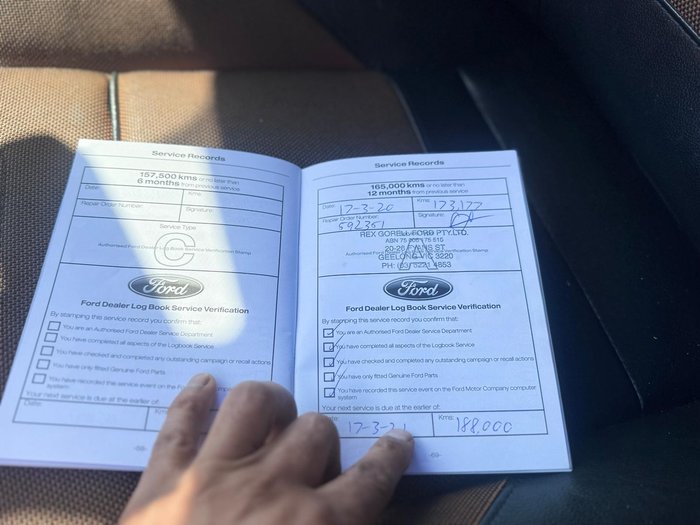 Service Records
157,500 kms or no later than
6 months from previous service
Date: Kms:
Repair Order Number: Signature:
Service Type
C
Authorised Ford Dealer Log Book Service Verification Stamp
Ford
Ford Dealer Log Book Service Verification
By stamping this service record you confirm that:
You are an Authorised Ford Dealer Service Department
You have completed all aspects of the Logbook Service
You have checked and completed any outstanding campaign or recall actions
You have only fitted Genuine Ford Parts
You have recorded this service event on the Ford Motor Company computer
system
Your next service is due at the earlier of:
Date: Kms
Service Records
165,000 kms or no later than
12 months from previous service
Date: 17-3-20 Kms: 173,177
Repair Order Number: 592351 Signature:
REX GORELL FORD PTY.LTD.
ABN 75
20-26 FYANS ST
GEELONG VIC 3220
PH: (03) 5221 4853
Ford
Ford Dealer Log Book Service Verification
By stamping this service record you confirm that:
You are an Authorised Ford Dealer Service Department
You have completed all aspects of the Logbook Service
You have checked and completed any outstanding campaign or recall actions
You have only fitted Genuine Ford Parts
You have recorded this service event on the Ford Motor Company computer
system
Your next service is due at the earlier of:
17-3-21 Kms: 188,000
-69-